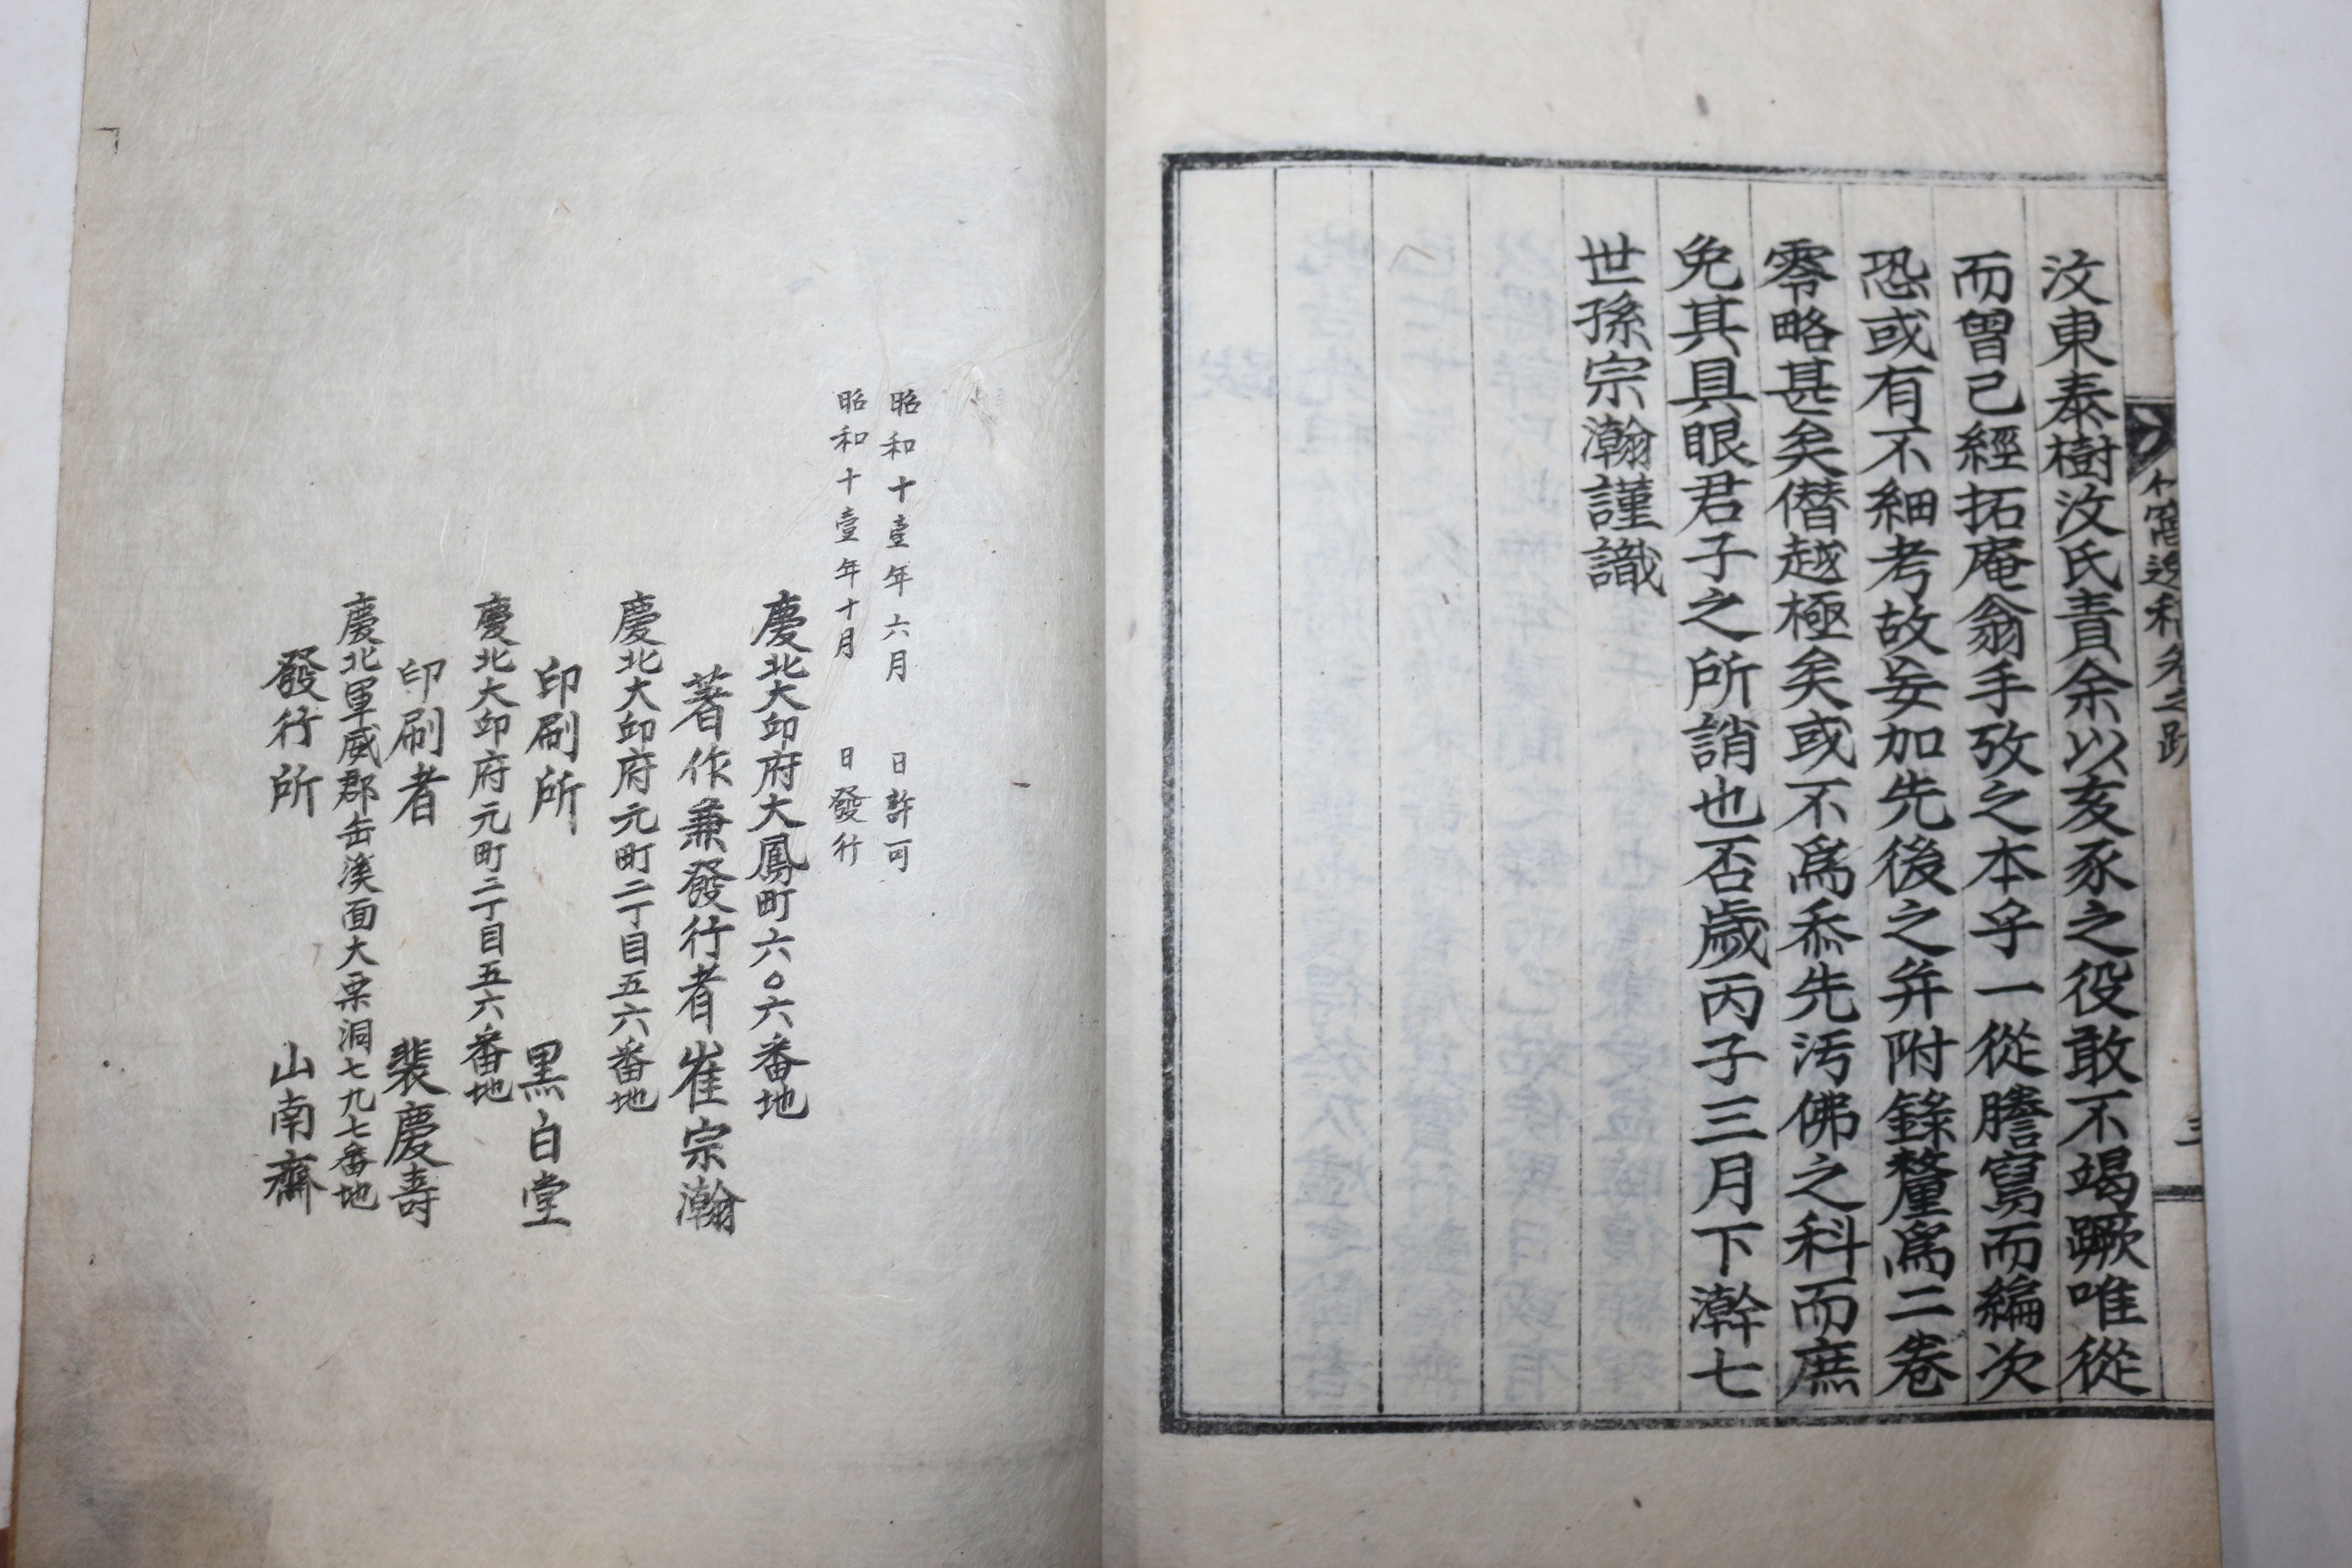 竹窩逸稿卷之跋
三
汶東泰樹汶氏責余以亥豕之役敢不竭蹶唯從
而曾已經拓庵翁手攷之本乎一從謄寫而編次
恐或有不細考故妄加先後之弁附錄釐爲二卷
零略甚矣僭越極矣或不爲忝先汚佛之科而庶
免其具眼君子之所誚也否歲丙子三月下澣七
世孫宗瀚謹識
昭和十壹年六月 日許可
昭和十壹年十月 日發行
慶北大邱府大鳳町六〇六番地
著作兼發行者崔宗瀚
慶北大邱府元町二丁目五六番地
印刷所 黑白堂
慶北大邱府元町二丁目五六番地
印刷者 裴慶壽
慶北軍威郡缶溪面大栗洞七九七番地
發行所 山南齋